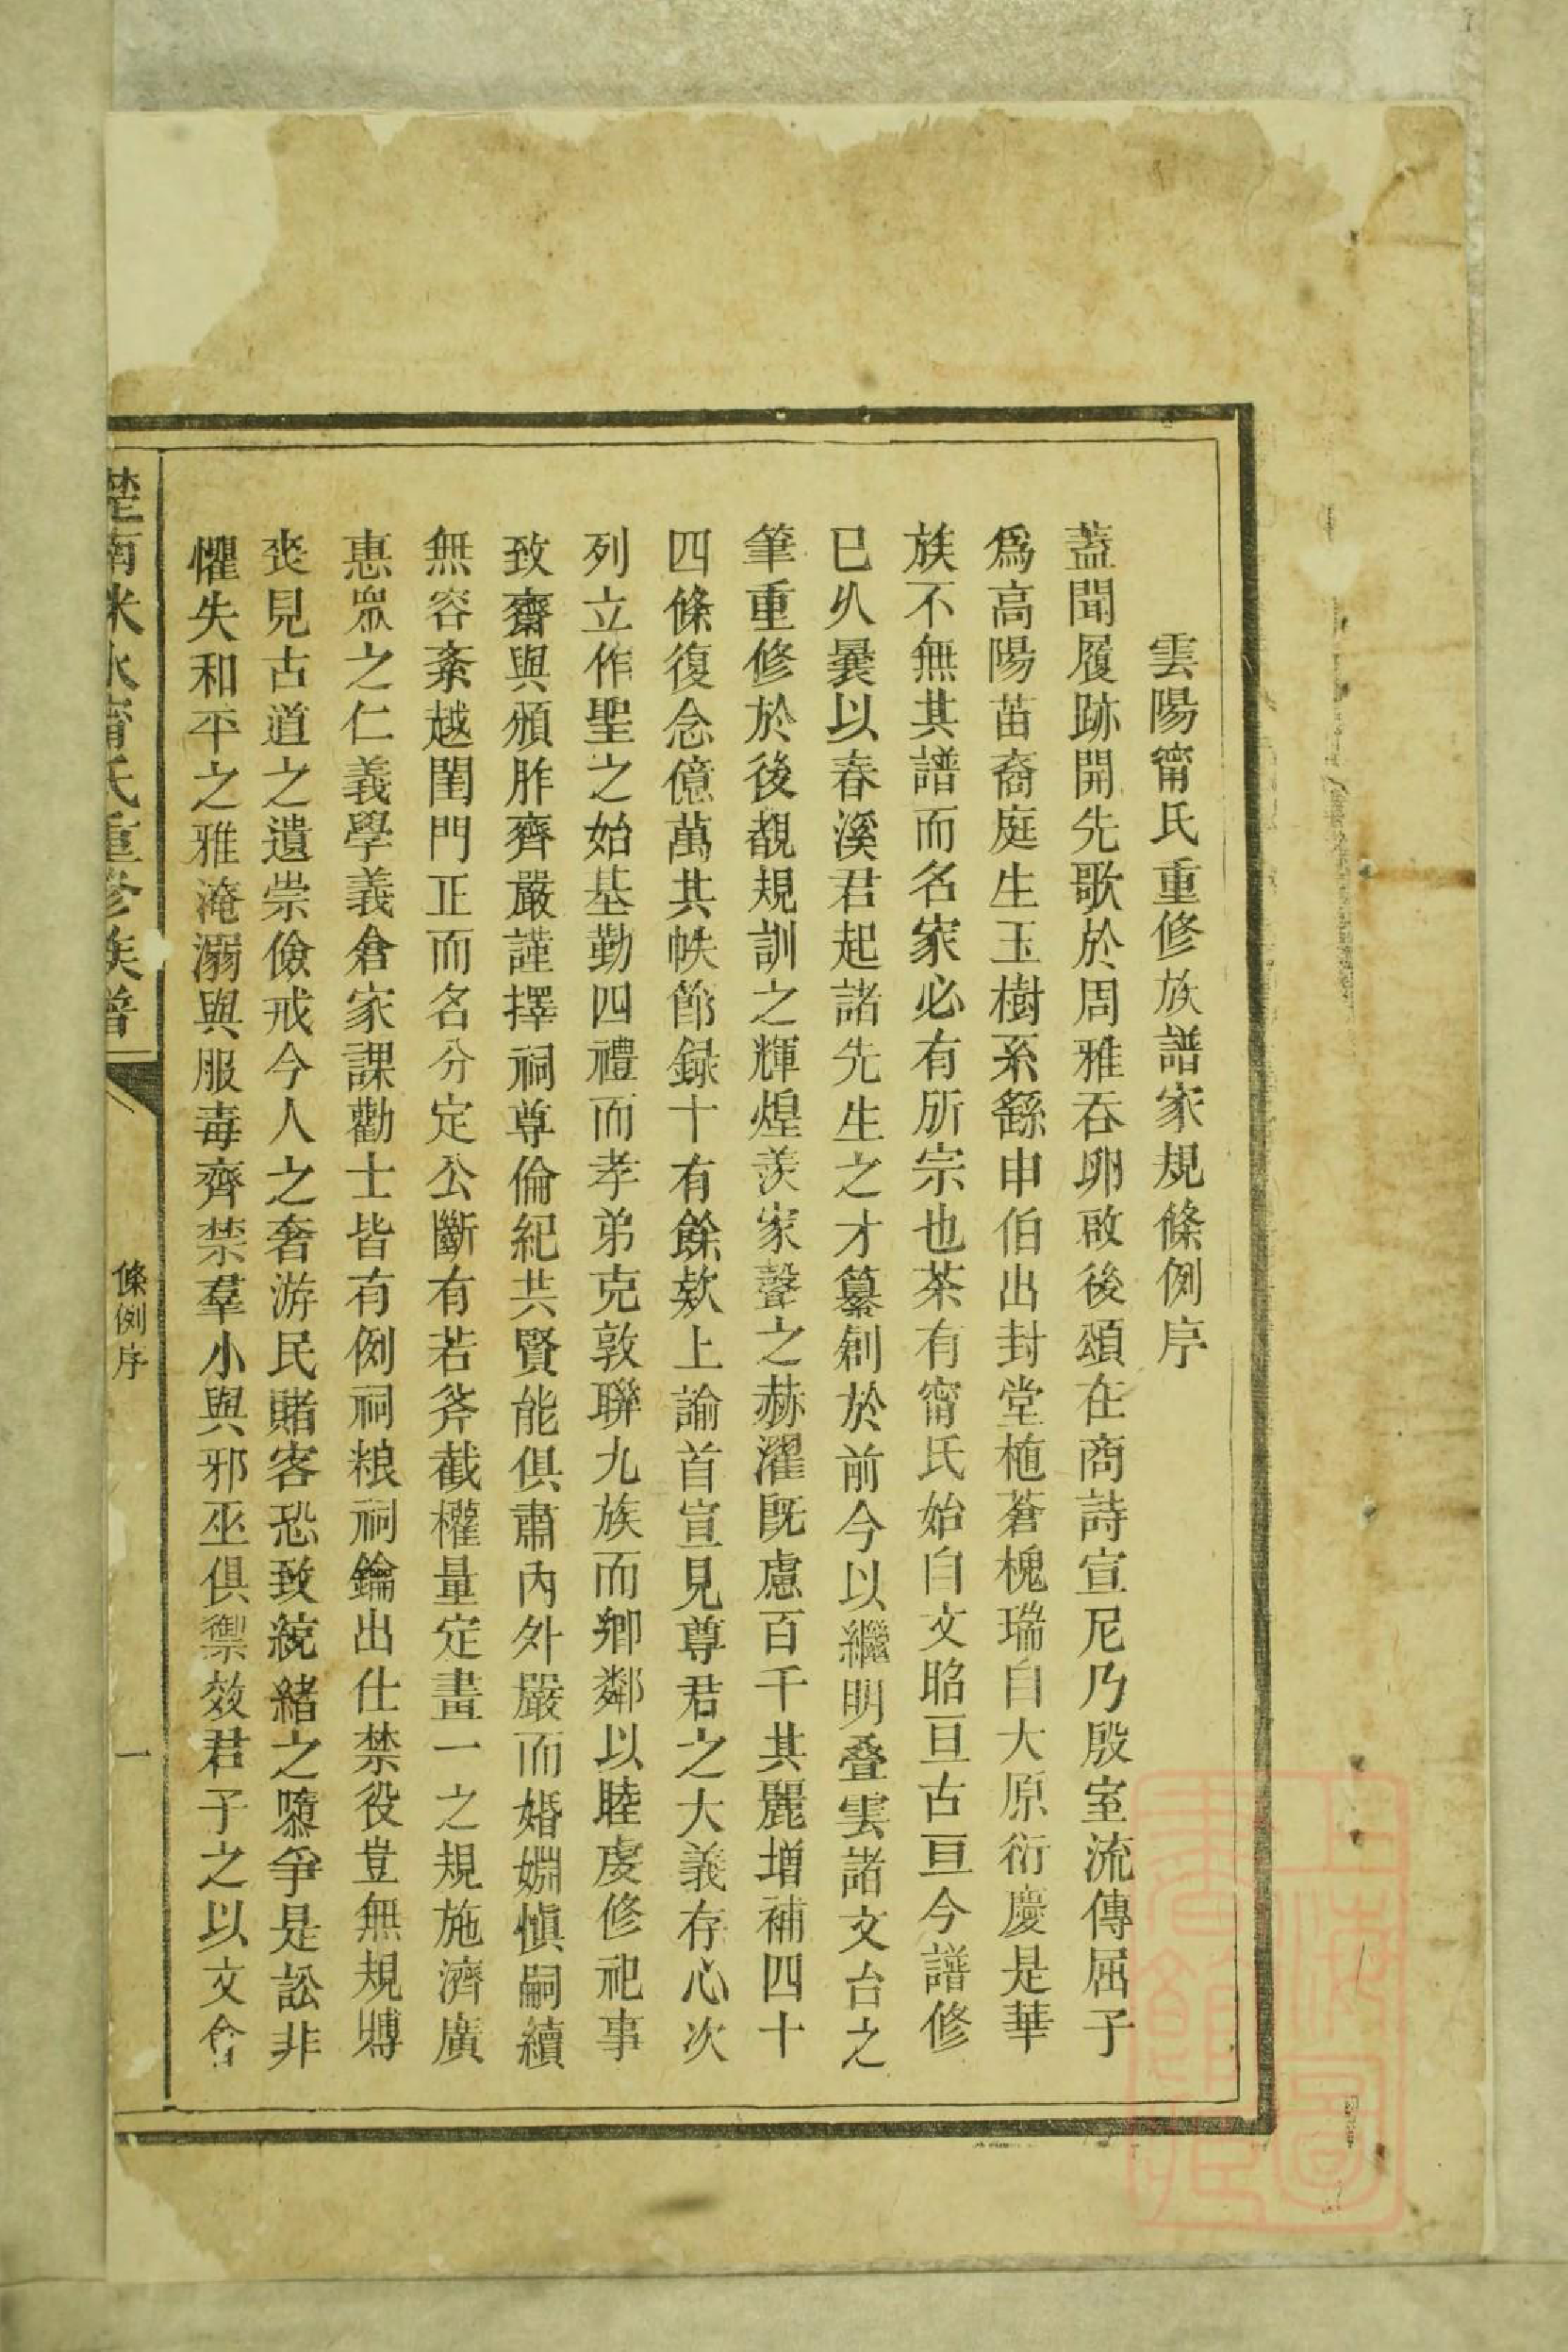 雲陽甯氏重修族譜家規條例序
蓋聞履跡開先歌於周雅吞卵啟後頌在商詩宣尼乃殷室流傳屈子
爲高陽苗裔庭生玉樹系繇申伯出封堂植蒼槐瑞自大原衍慶是華
族不無其譜而名家必有所宗也茶有甯氏始自文昭亘古亘今譜修
已久曩以春溪君起諸先生之才纂創於前今以繼明叠雲諸文台之
筆重修於後覩規訓之輝煌羨家聲之赫濯既慮百千其麗增補四十
四條復念億萬其帙節録十有餘欵上諭首宣見尊君之大義存心次
列立作聖之始基勤四禮而孝弟克敦聯九族而鄉鄰以睦虔修祀事
致齋與頒胙齊嚴謹擇祠尊倫紀共賢能俱肅內外嚴而婚姻慎嗣續
無容紊越閨門正而名分定公斷有若斧截權量定畫一之規施濟廣
惠衆之仁義學義倉家課勸士皆有例祠粮祠鑰出仕禁役豈無規賻
喪見古道之遺崇儉戒今人之奢游民賭客恐致統緒之隳爭是訟非
懼失和平之雅淹溺與服毒齊禁羣小與邪巫俱禦效君子之以文會
楚南米水甯氏重修族譜
條例序
一
上海圖
書館藏